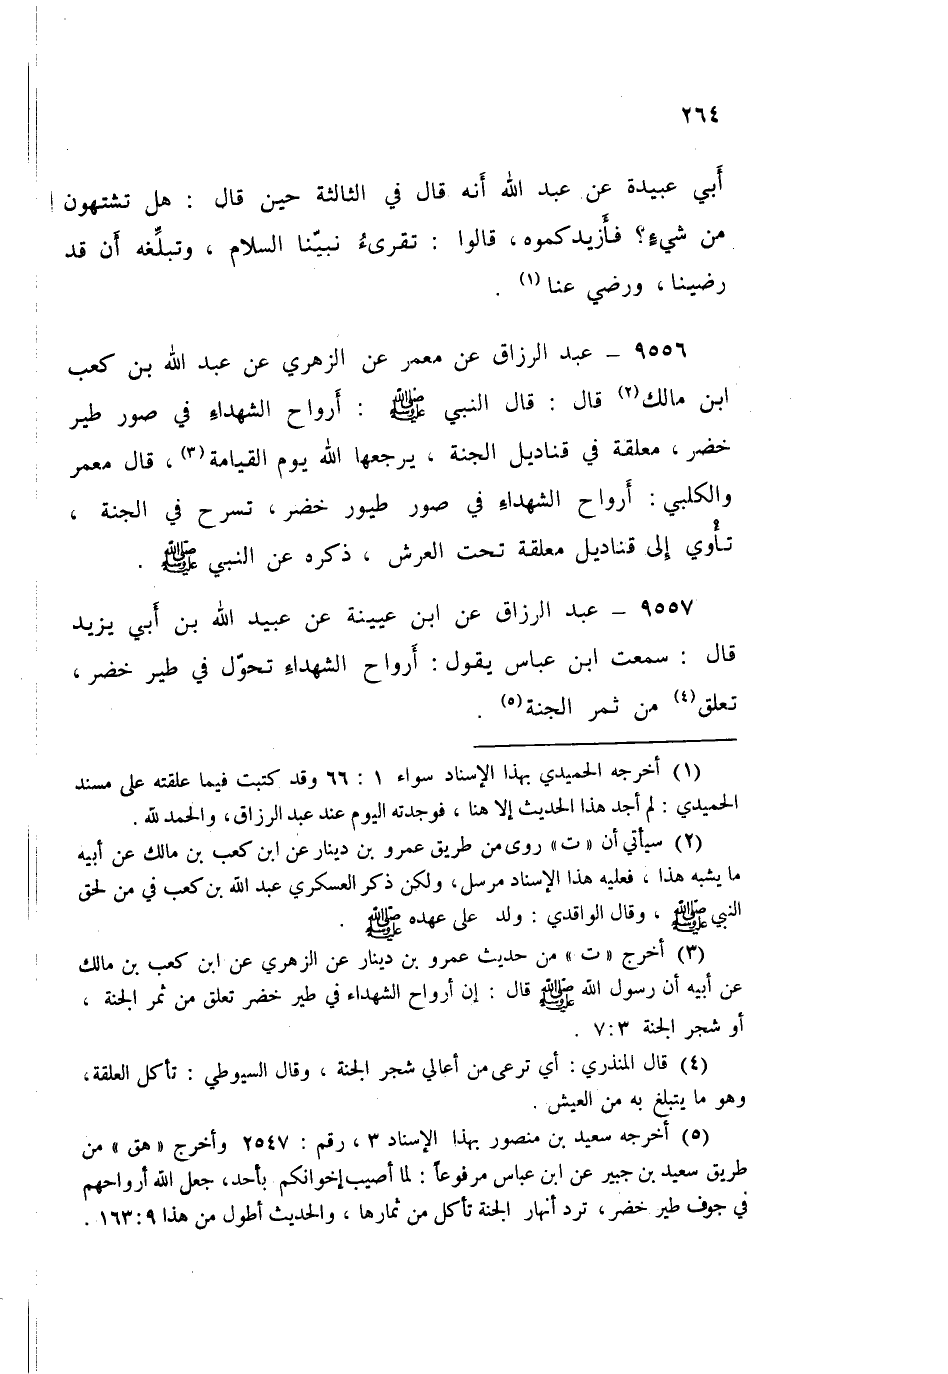 ٢٦٤
أَبي عبيدة عن عبد الله أَنه قال في الثالثة حين قال : هل تشتهون
من شيءٍ؟ فأَزيدكموه، قالوا : تقرىءُ نبيّنا السلام ، وتبلِّغه أَن قد
رضينا ، ورضي عنا(١) .
٩٥٥٦ – عبد الرزاق عن معمر عن الزهري عن عبد الله بن كعب
ابن مالك(٢) قال : قال النبي ﷺ : أَرواح الشهداءِ في صور طير
خضر ، معلقة في قناديل الجنة ، يرجعها الله يوم القيامة(٣) ، قال معمر
والكلبي : أَرواح الشهداءِ في صور طيور خضر ، تسرح في الجنة ،
تأْوي إلى قناديل معلقة تحت العرش ، ذكره عن النبي ﷺ .
٩٥٥٧ – عبد الرزاق عن ابن عيينة عن عبيد الله بن أَبي يزيد
قال : سمعت ابن عباس يقول : أَرواح الشهداءِ تحوّل في طير خضر ،
تعلق(٤) من ثمر الجنة(٥) .
(١) أخرجه الحميدي بهذا الإسناد سواء ١ : ٦٦ وقد كتبت فيما علقته على مسند
الحميدي : لم أجد هذا الحديث إلا هنا ، فوجدته اليوم عند عبد الرزاق، والحمد لله .
(٢) سيأتي أن « ت » روى من طريق عمرو بن دينار عن ابن كعب بن مالك عن أبيه
ما يشبه هذا ، فعليه هذا الإسناد مرسل، ولكن ذكر العسكري عبد الله بن كعب في من لحق
النبي ﷺ ، وقال الواقدي : ولد على عهده ﷺ .
(٣) أخرج « ت » من حديث عمرو بن دينار عن الزهري عن ابن كعب بن مالك
عن أبيه أن رسول الله ﷺ قال : إن أرواح الشهداء في طير خضر تعلق من ثمر الجنة ،
أو شجر الجنة ٣:٧ .
(٤) قال المنذري : أي ترعى من أعالي شجر الجنة ، وقال السيوطي : تأكل العلقة،
وهو ما يتبلغ به من العيش .
(٥) أخرجه سعيد بن منصور بهذا الإسناد ٣ ، رقم : ٢٥٤٧ وأخرج « هق » من
طريق سعيد بن جبير عن ابن عباس مرفوعاً : لما أصيب إخوانكم بأحد، جعل الله أرواحهم
في جوف طير خضر، ترد أنهار الجنة تأكل من ثمارها ، والحديث أطول من هذا ٩:١٦٣ .